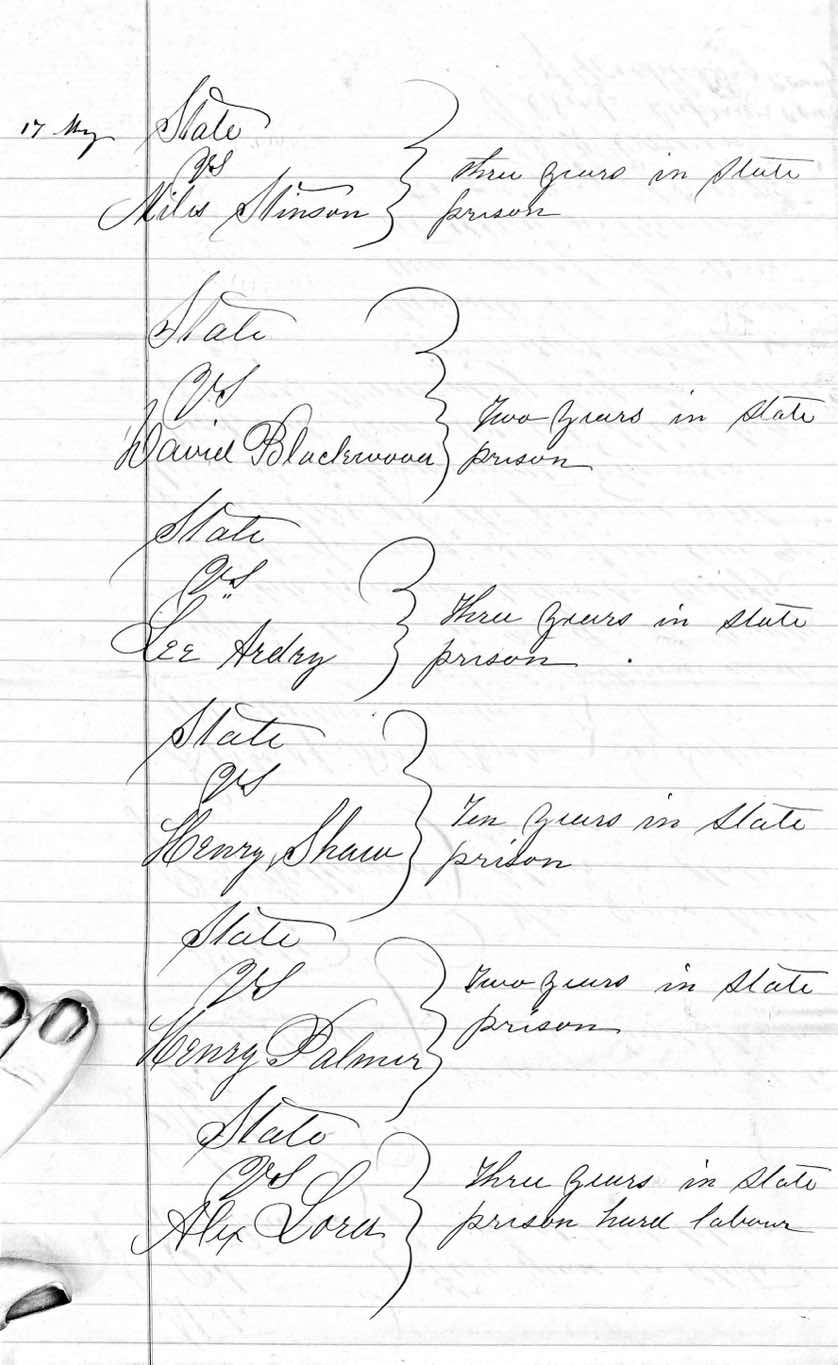 17
State
vs
Miles Stinson
three years in State
prison
State
vs
David Blackwood
Two years in State
prison
State
vs
Lee Ardry
Three years in State
prison
State
vs
Henry Shaw
Ten years in State
prison
State
vs
Henry Palmer
Two years in State
prison
State
vs
Alex Lord
Three years in State
prison hard labour